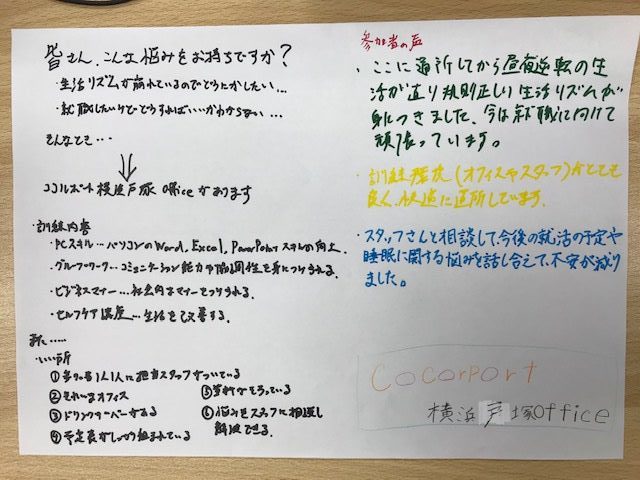 皆さん、こんな悩みをお持ちですか?
・生活リズムが崩れているのでどうにかしたい...
・就職したいけどどうすればいいかわからない...
そんなとき...
ココルポート 横浜戸塚 Officeがあります
・訓練内容
・PCスキル...パソコンのWord, Excel, PowerPointスキルの向上
・グループワーク...コミュニケーション能力や協調性を身につけられる。
・ビジネスマナー...社会的なマナーをつけられる。
・セルフケア講座...生活を改善する。
また.....
・いい所
①1人1人に担当スタッフがついている
②きれいなオフィス
③ドリンクサーバーがある
④予定表がしっかり組まれている
⑤資料がそろっている
⑥悩みをスタッフに相談し
解決できる。
参加者の声
・ここに通所してから昼夜逆転の生
活が直り規則正しい生活リズムが
身につきました、今は就職に向けて
頑張っています。
・訓練環境(オフィスやスタッフ)がとても
良く、快適に通所しています。
・スタッフさんと相談して、今後の就活の予定や
睡眠に関する悩みを話し合えて、不安が減り
ました。
Cocorport
横浜戸塚Office